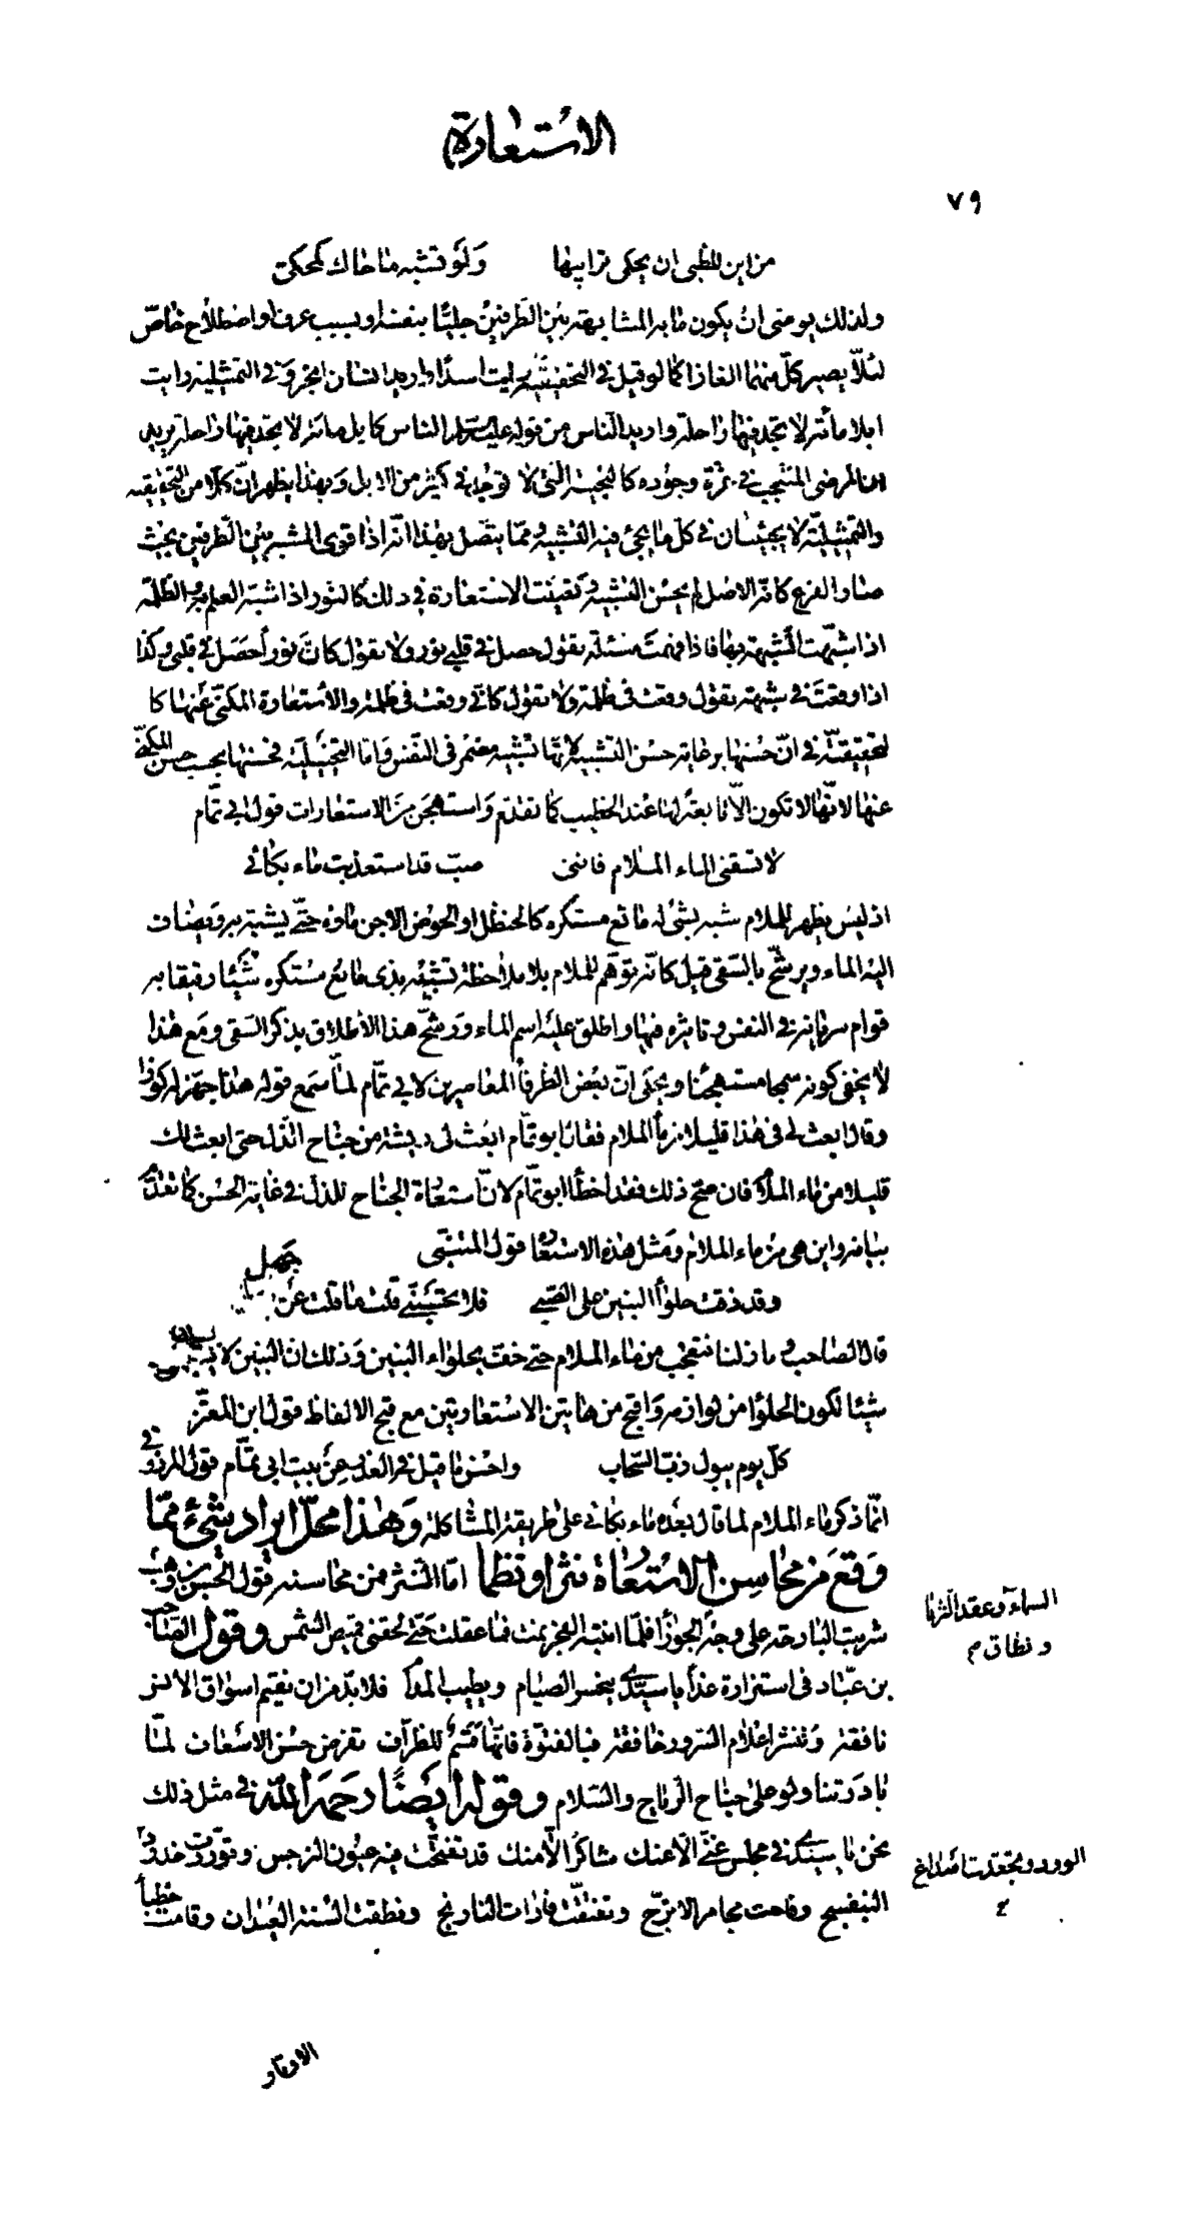 الاستعارة
٧٩
من اين للظبي ان يحكي ترايبها ولو تشبه ما حاك كمحكي
ولذلك يوصى ان يكون ما به المشابهة بين الطرفين جليّا بنفسه او بسبب عرف او اصطلاح خاصّ
لئلّا يصير كلّ منهما الغازا كما لو قيل في التحقيقيّة رايت اسدًا واريد انسان ابخر وفي التمثيلية رايت
ابلا مأته لا تجد فيها راحلة واريد الناس من قوله الناس كابل مائه لا تجد فيها راحلة يريد
ان المرضى المنتجب في وجوده كالنجيبة التى لا توجد في كثير من الابل وبهذا يظهر انّ كلّا من التحقيقيه
والتمثيليّة لا يجيئان في كلّ ما يجئ فيه التشبيه وممّا يتّصل بهذا انّه اذا قوى الشبه بين الطرفين بحيث
صار الفرع كانّه الاصل لم يحسن التشبيه وتعيّنت الاستعارة في ذلك كالنور اذا شبّه العلم به والظلمة
اذا شبّهت الشبهة بها فاذا فهمت مسئلة تقول حصل في قلبي نور ولا تقول كانّ نوراً حصل في قلبي وكذا
اذا وقعت في شبهة تقول وقعت في ظلمة ولا تقول كانّي وقعت في ظلمة والاستعارة المكنّى عنها كا
لتحقيقيّة في انّ حُسنها برعاية حسن التشبيه لانّها تشبيه مضمر في النفس وامّا التخييليّة فحسنها بحسب حسن المكنّى
عنها لانّها لا تكون الّا تابعة لها عند الخطيب كما تقدّم واستهجن من الاستعارات قول ابي تمّام
لا تسقنى الماء الملام فاننى صبّ قد استعذبت ماء بكائى
اذ ليس يظهر للملام شبه بشئ له مائع مستكره كالحنظل او الحوض الاجن ماؤه حتّى يشبّه به ويضاف
اليه الماء ويرشّح بالسقى قيل كانّه توهّم للملام بلا ملاحظة تشبيهه بذى مائع مستكره شيئا رقيقا به
قوام سريانه في النفس وتاثيره فيها واطلق عليه اسم الماء ورشّح هذا الاطلاق بذكر السقى ومع هذا
لا يخفى كونه سمجا مستهجنا ويحكى انّ بعض الظرفاء المعاصرين لابي تمّام لمّا سمع قوله هذا جهّز له كوزا
وقال ابعث لى في هذا قليلا من ماء الملام فقال ابو تمّام ابعث لى ريشة من جناح الذّل حتى ابعث لك
قليلا من ماء الملام فان صحّ ذلك فقد اخطأ ابو تمّام لانّ استعارة الجناح للذلّ في غاية الحسن كما تقدّم
بيانه واين هى من ماء الملام ومثل هذه الاستعارة قول المتنبّى
وقد ذقت حلواء البنين على الصّبى فلا تحسبنّى قلت ما قلت عن جهل
قال الصاحب وما زلنا نتعجّب من ماء الملام حتى خفّ بحلواء البنين وذلك ان البنين لا
شيئا تكون الحلوا من لوازمه واقبح من هاتين الاستعارتين مع قبح الالفاظ قول ابن المعتزّ
كلّ يوم يبول زبّ السّحاب واحسن ما قيل في العذر عن بيت ابى تمّام قول المرزوقى
انّما ذكر ماء الملام لما قال بعده ماء بكائى على طريقة المشاكلة وهذا محلّ ايراد شئ ممّا
وقع من محاسن الاستعارة نثرا ونظما امّا النثر فمن محاسنه قول الحسن بن وهب
شربت البارحة على وجه الجوزاء فلمّا انتبه الفجر نمت فما عقلت حتّى لحقنى قميص الشمس وقول الصاحب
السماء وعقد الثريّا
ونطاق م
بن عبّاد في استزارة غداً يا سيّدى ينحسر الصيام ويطيب المدام فلا بدّ من ان نقيم اسواق الانس
نافقة وننشر اعلام السرور خافقة فبالفتوّة فانّها قسم للظراف تفرض حسن الاسعاف لمّا
بادرتنا ولو على جناح الرياح والسّلام وقوله ايضًا رحمه اللّه في مثل ذلك
نحن يا سيّدى في مجلس غنىّ الّا عنك شاكر الّا منك قد تفتّحت فيه عيون النرجس وتورّدت خدود
الورد وتجعّدت اصداغ
البنفسج وفاحت مجامر الاترجّ وتفتّقت فارات النارنج ونطقت السنة العيدان وقامت خطبأ
الاوتار